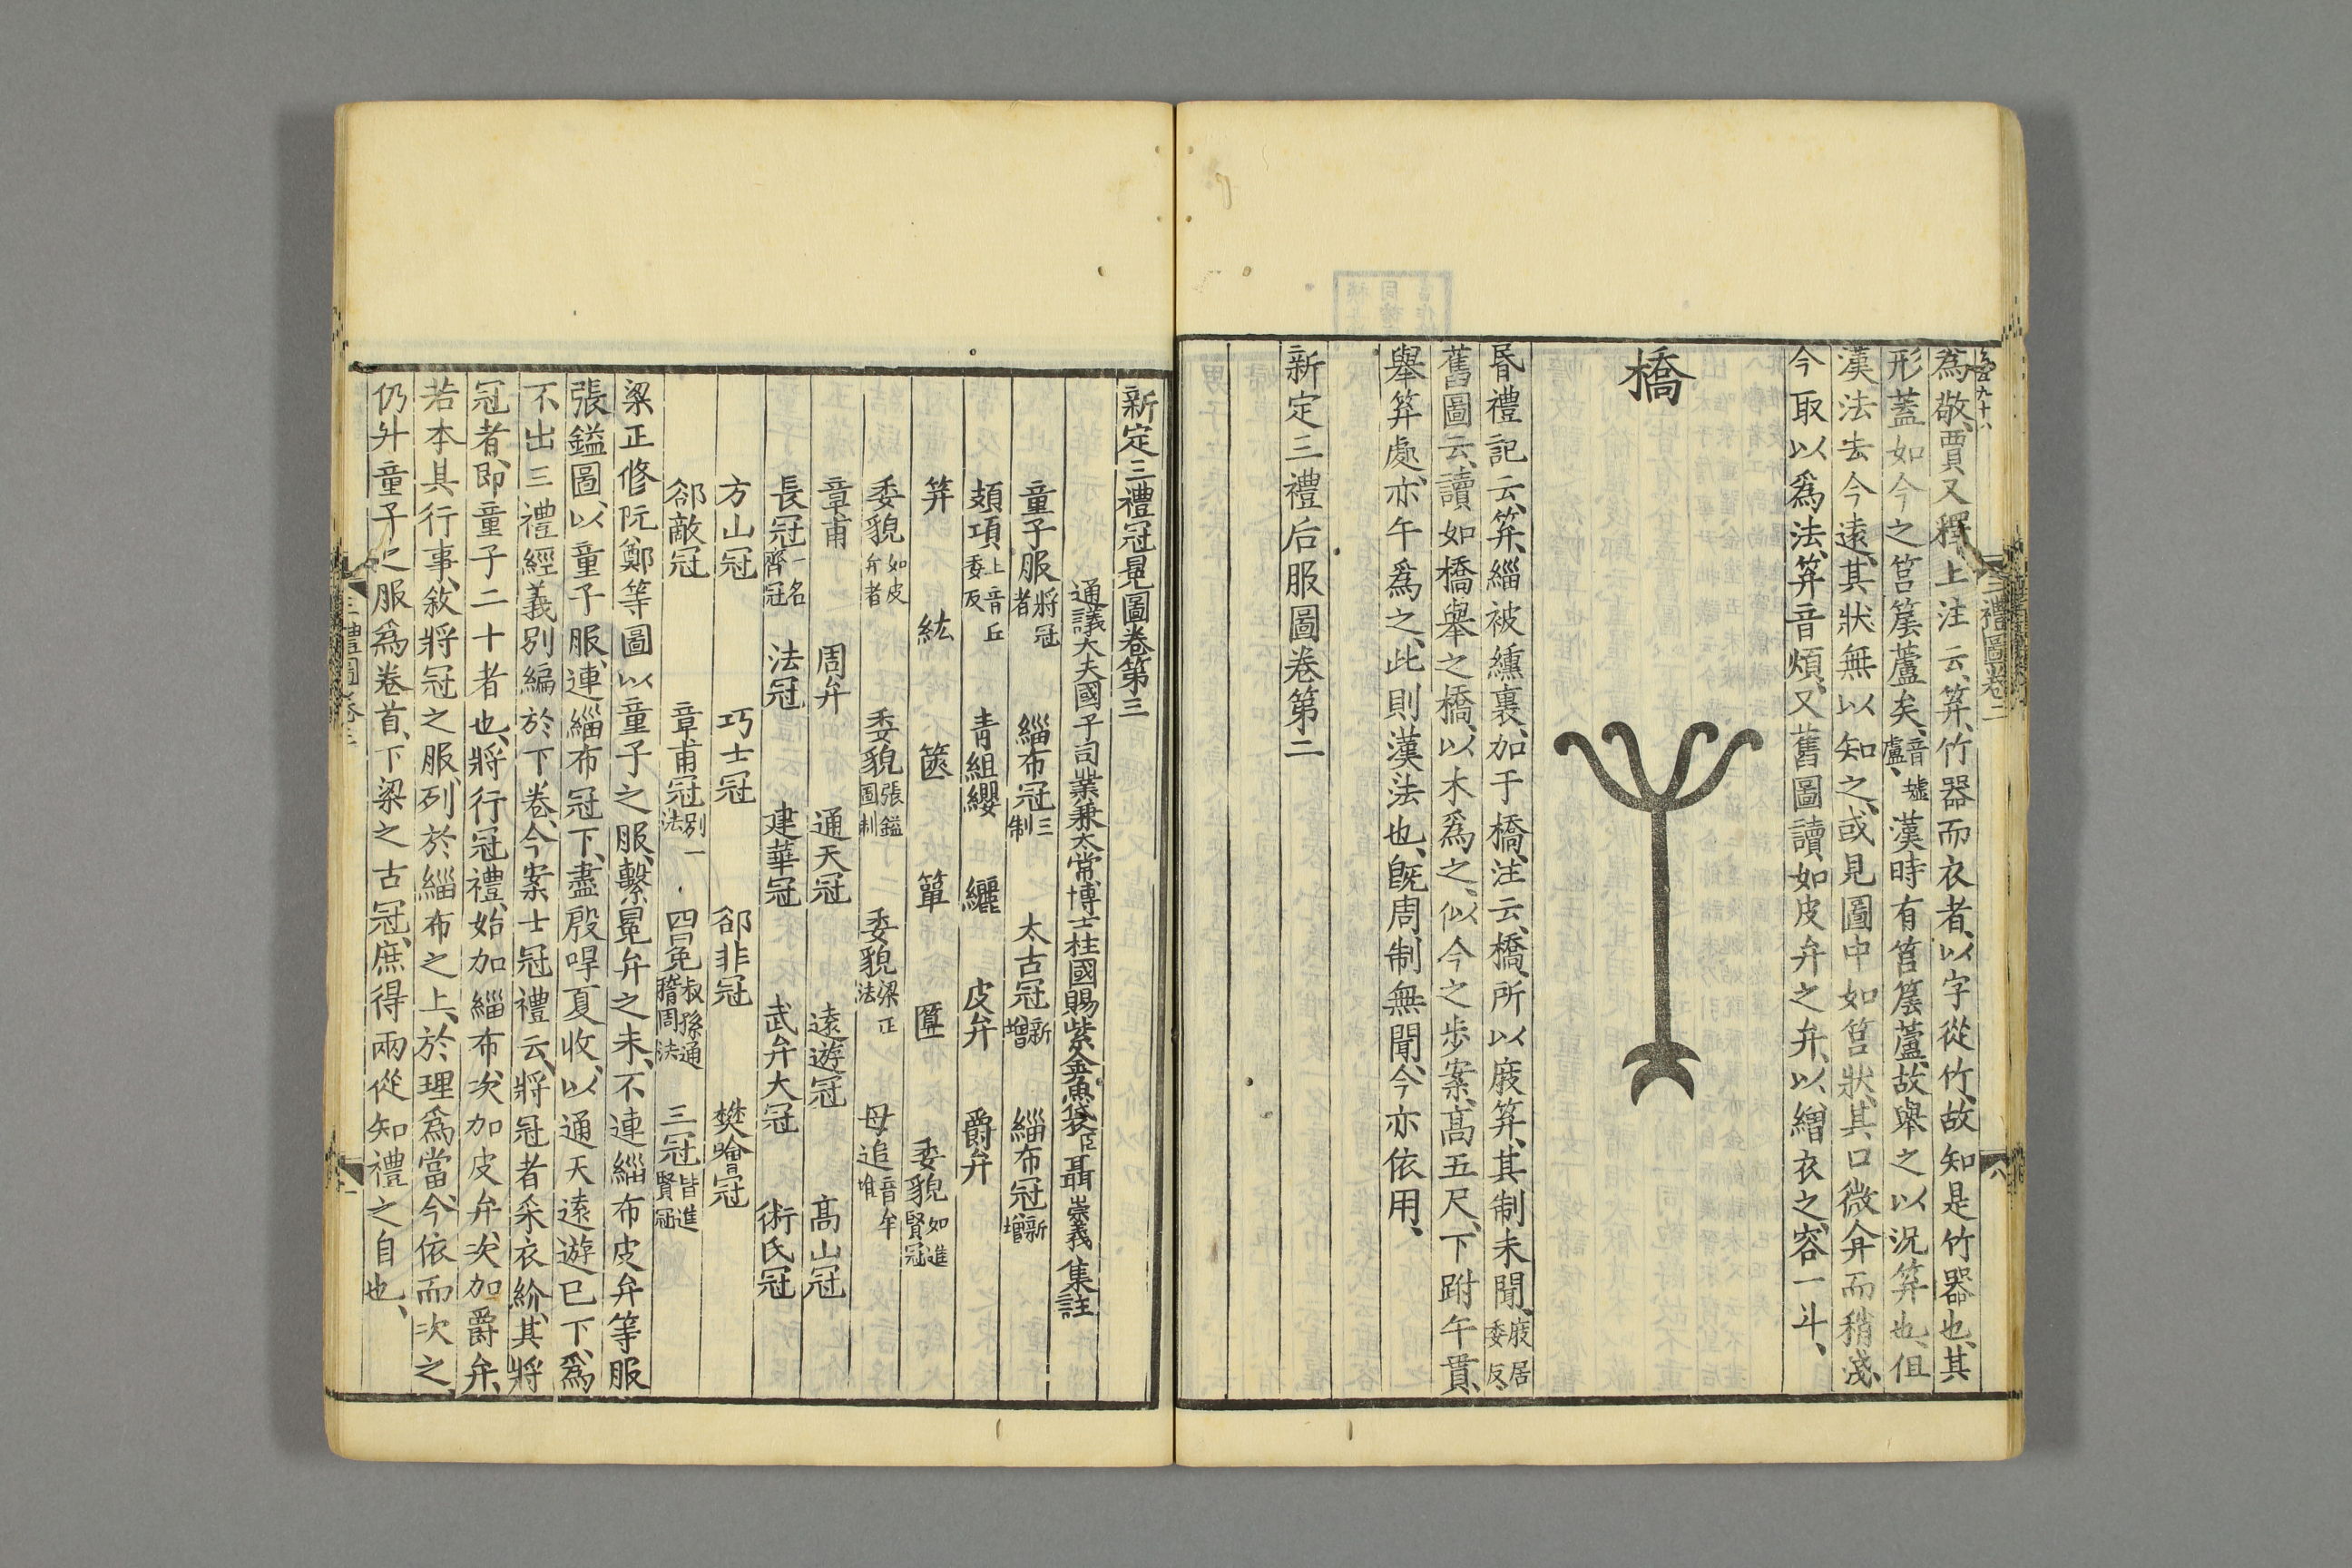 三禮圖卷二
八
為敬、賈又釋上注云、笲、竹器而衣者、以字從竹、故知是竹器也、其
形蓋如今之筥𥬔蘆矣、音墟盧、漢時有筥𥬔蘆、故舉之以況笲也、但
漢法去今遠、其狀無以知之、或見圖中如筥狀、其口微弇而稍淺、
今取以為法、笲音煩、又舊圖讀如皮弁之弁、以繒衣之、容一斗、
橋
昬禮記云、笲、緇被纁裏、加于橋、注云、橋、所以庪笲、其制未聞、庪居委反、
舊圖云、讀如橋舉之橋、以木為之、似今之步案、高五尺、下跗午貫、
舉笲處、亦午為之、此則漢法也、旣周制無聞、今亦依用、
新定三禮后服圖卷第二
新定三禮冠冕圖卷第三
通議大夫國子司業兼太常博士柱國賜紫金魚袋臣聶崇義集註
童子服將冠者 緇布冠三制 太古冠新增 緇布冠新增
頍項上音丘委反 青組纓 纚 皮弁 爵弁
笲 紘 篋 簞 匴 委貌如進賢冠
委貌如皮弁者 委貌張鎰圖制 委貌梁正法 母追音牟堆
章甫 周弁 通天冠 遠遊冠 高山冠
長冠一名齊冠 法冠 建華冠 武弁大冠 術氏冠
方山冠 巧士冠 郤非冠 樊噲冠
郤敵冠 章甫冠別一法 四冕叔孫通𦡱周法 三冠皆進賢冠
梁正修阮鄭等圖以童子之服、繫冕弁之末、不連緇布皮弁等服、
張鎰圖、以童子服、連緇布冠下、盡殷冔夏收、以通天遠遊已下、為
不出三禮經義別編於下卷、今案士冠禮云、將冠者采衣紒、其將
冠者、即童子二十者也、將行冠禮、始加緇布、次加皮弁、次加爵弁、
若本具行事、敘將冠之服、列於緇布之上、於理為當、今依而次之、
仍升童子之服為卷首、下梁之古冠、庶得兩從知禮之自也、
三禮圖卷三
一